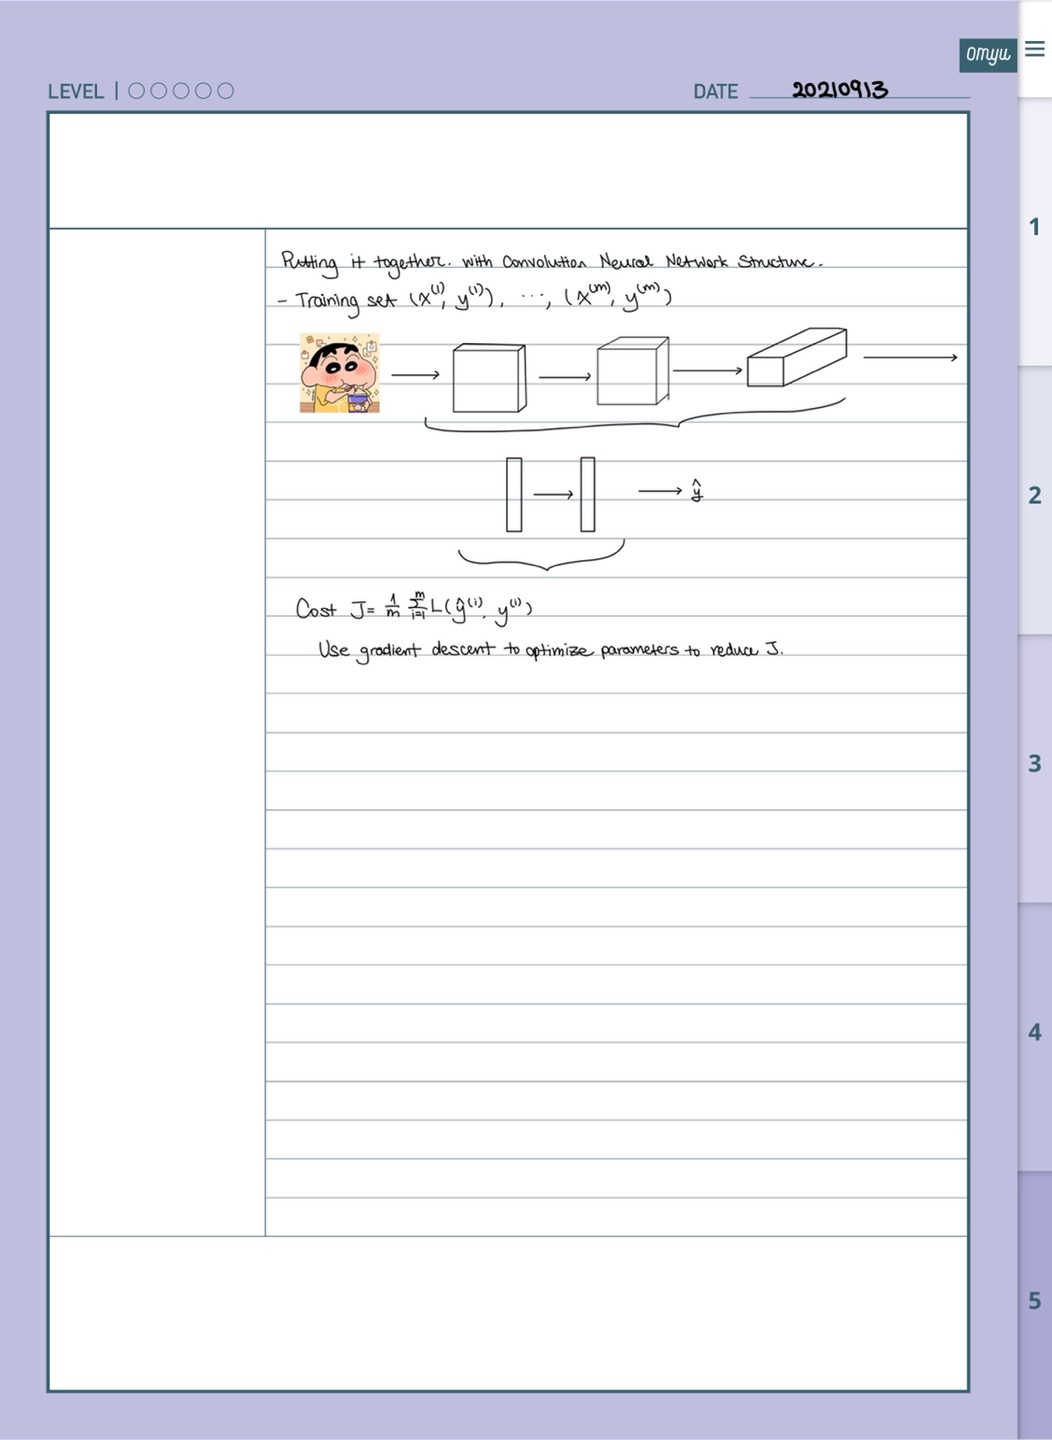 omyu
LEVEL | ○○○○○
DATE 20210913
Putting it together. with Convolution Neural Network Structure.
- Training set (x⁽¹⁾, y⁽¹⁾), ⋯, (x⁽ᵐ⁾, y⁽ᵐ⁾)
ŷ
Cost J = 1/m Σᵢ₌₁ᵐ L(ŷ⁽ⁱ⁾, y⁽ⁱ⁾)
Use gradient descent to optimize parameters to reduce J.
1
2
3
4
5